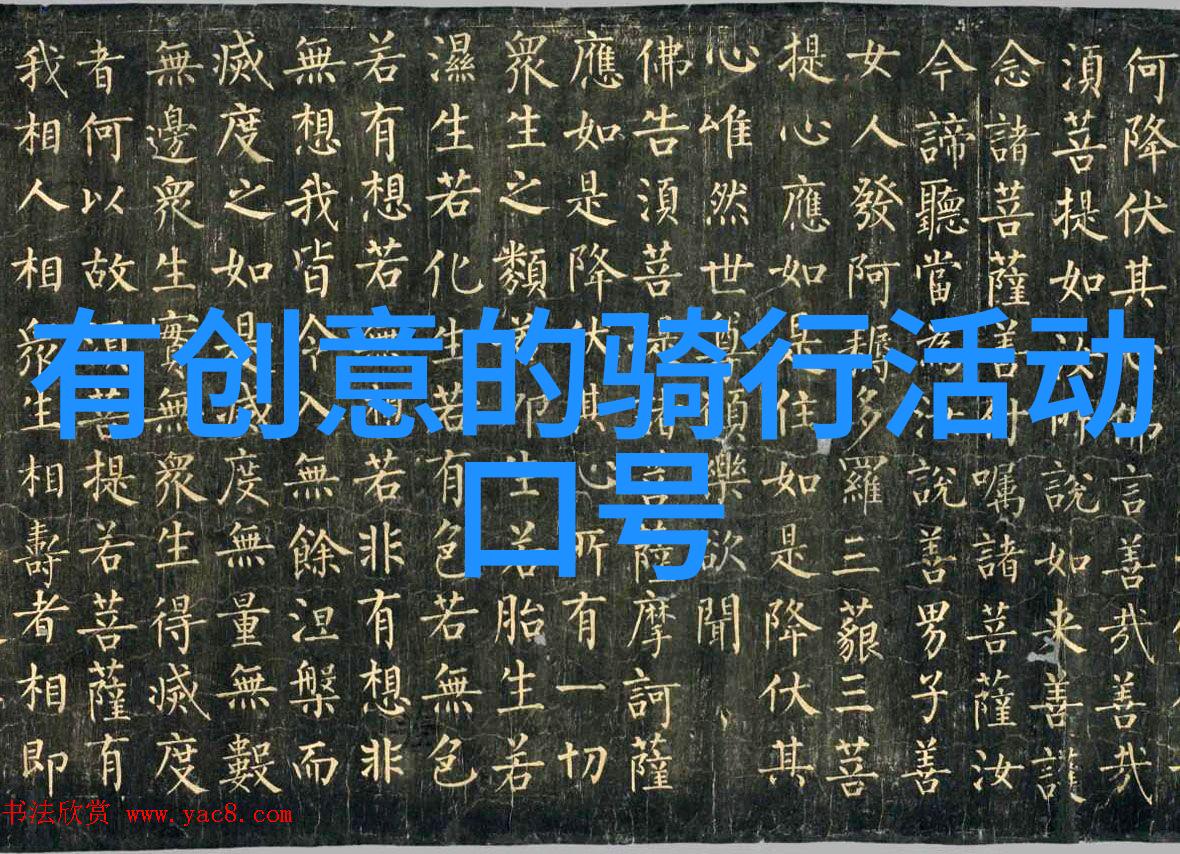 何降伏其心佛言善哉善哉
湏菩提如汝所說如来善護
念諸菩薩善付嘱諸菩薩汝
今諦聽當為汝說善男子善
女人發阿耨多羅三藐三菩
提心應如是住如是降伏其
心唯然世尊願樂欲聞
佛告湏菩提諸菩薩摩訶薩
應如是降伏其心所有一切
眾生之類若卵生若胎生若
濕生若化生若有色若無色
若有想若無想若非有想非
無想我皆令入無餘涅槃而
滅度之如是滅度無量無數
無邊眾生實無眾生得滅度
者何以故湏菩提若菩薩有
我相人相眾生相壽者相即
有创意的骑行活动
口号
书法欣赏 www.yac8.com